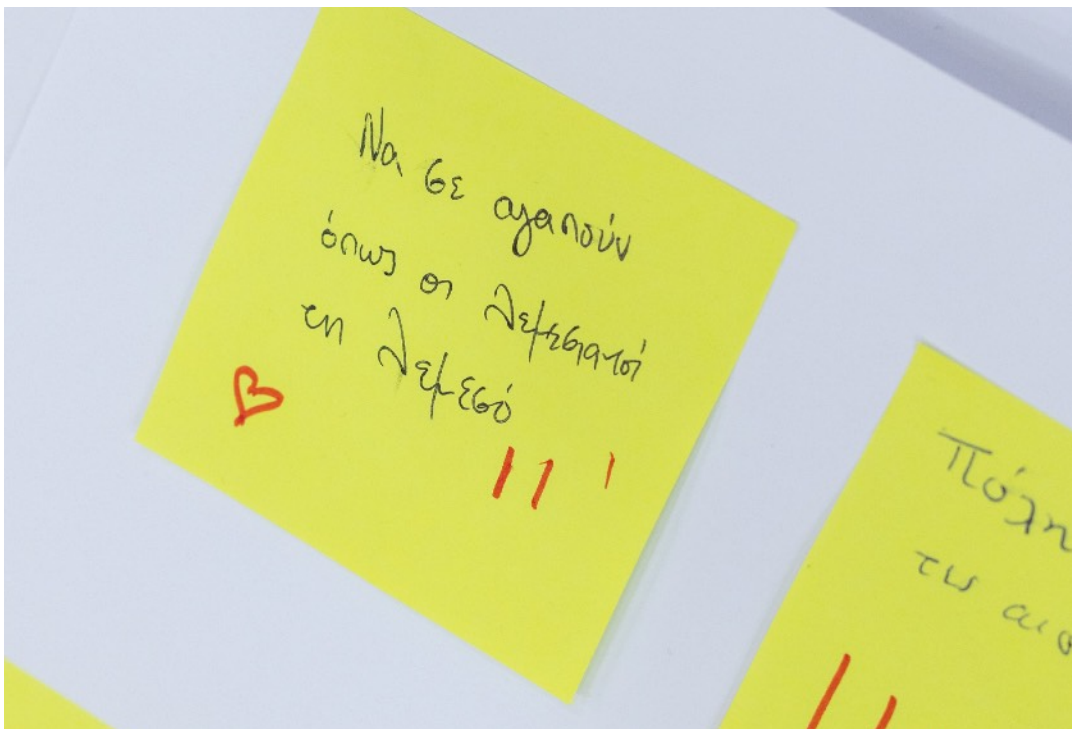 Να σε αγαπούν
όπως οι Λεμεσιανοί
τη Λεμεσό
Πόλη
τις